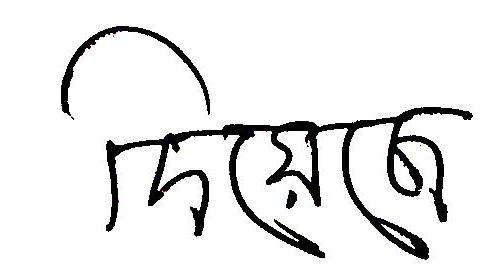 দিয়েছে